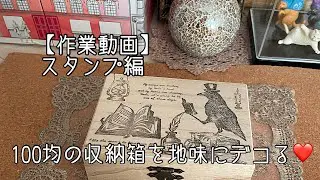 【作業動画】
スタンプ編
100均の収納箱を地味にデコる❤️